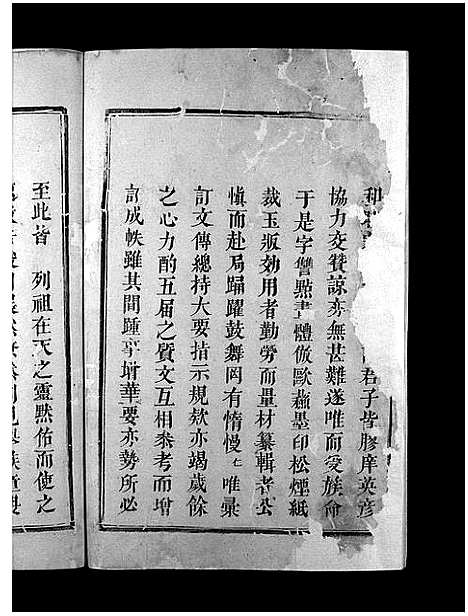 君子皆膠庠英彥
協力交贊諒亦無甚難遂唯而受族命
于是字讐點畫體倣歐蘇墨印松煙紙
裁玉版効用者勤勞而量材纂輯者公
慎而赴局踊躍鼓舞罔有惰慢七唯彔
訂文傳總持大要指示規欸亦竭歲餘
之心力酌五届之質文互相叅考而增
訂成帙雖其間踵事增華要亦勢所必
至此皆 列祖在天之靈默佑而使之